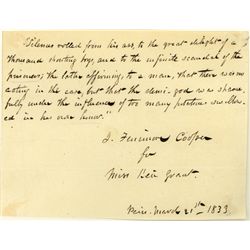 "Silenus rolled from his ass, to the great delight of a
thousand shouting boys, and to the infinite scandal of the
prisoners; the latter affirming to a man, that there was no
acting in the case, but that the demi-god was shame-
fully under the influence of too many potations swallow-
ed in his own honor."
J. Fenimore Cooper
for
Miss Grant.
Paris. March 21st 1833